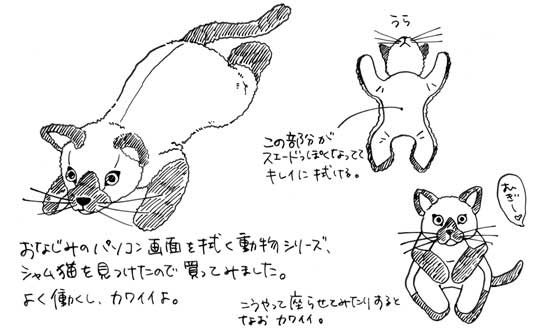 うら
この部分が
スエードっぽくなってて
キレイに拭ける。
おなじみのパソコン画面を拭く動物シリーズ、
シャム猫を見つけたので買ってみました。
よく働くし、カワイイよ。
むぎー
こうやって座らせてみたりすると
なお カワイイ。